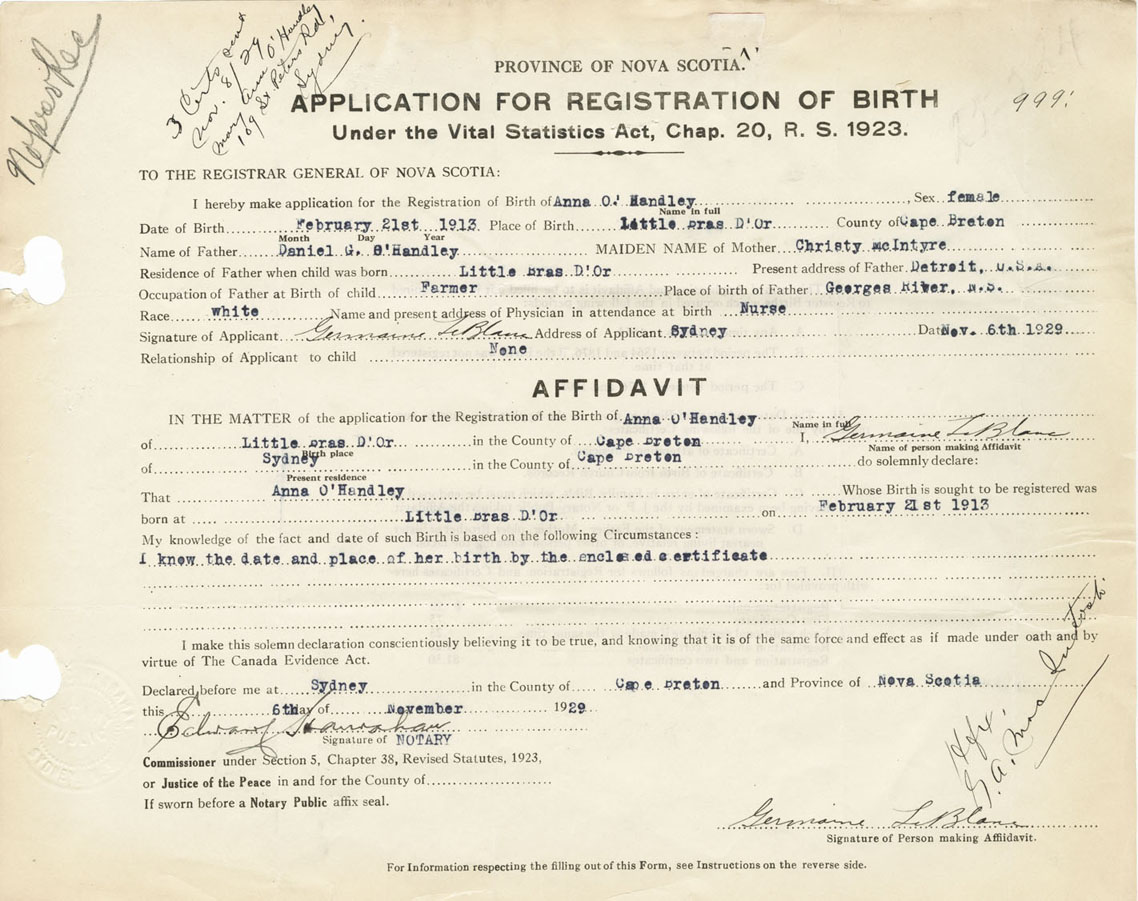 No pros Rec
3 Certs sent
Nov. 8/29
Mary Ann O'Handley
169 St Peters Rd,
Sydney.
PROVINCE OF NOVA SCOTIA.
APPLICATION FOR REGISTRATION OF BIRTH
999.
Under the Vital Statistics Act, Chap. 20, R. S. 1923.
TO THE REGISTRAR GENERAL OF NOVA SCOTIA:
I hereby make application for the Registration of Birth of Anna O.' Handley, Sex female
Name in full
Date of Birth February 21st 1913. Place of Birth Little Bras D'Or County of Cape Breton
Month Day Year
Name of Father Daniel G. O'Handley MAIDEN NAME of Mother Christy McIntyre
Residence of Father when child was born Little Bras D'Or Present address of Father Detroit, U.S.A.
Occupation of Father at Birth of child Farmer Place of birth of Father Georges River, N.S.
Race white Name and present address of Physician in attendance at birth Nurse
Signature of Applicant Germaine LeBlanc Address of Applicant Sydney Date Nov. 6th 1929.
Relationship of Applicant to child None
AFFIDAVIT
IN THE MATTER of the application for the Registration of the Birth of Anna O'Handley
Name in full
of Little Bras D'Or in the County of Cape Breton I, Germaine LeBlanc
Birth place Name of person making Affidavit
of Sydney in the County of Cape Breton do solemnly declare:
Present residence
That Anna O'Handley Whose Birth is sought to be registered was
born at Little Bras D'Or on February 21st 1913
My knowledge of the fact and date of such Birth is based on the following Circumstances:
I know the date and place of her birth by the enclosed certificate
I make this solemn declaration conscientiously believing it to be true, and knowing that it is of the same force and effect as if made under oath and by
virtue of The Canada Evidence Act.
Declared before me at Sydney in the County of Cape Breton and Province of Nova Scotia
this 6th day of November 1929
Edward
Signature of NOTARY
Commissioner under Section 5, Chapter 38, Revised Statutes, 1923,
or Justice of the Peace in and for the County of
If sworn before a Notary Public affix seal.
Hfx.
G.A. Mac
Germaine LeBlanc
Signature of Person making Affiidavit.
For Information respecting the filling out of this Form, see Instructions on the reverse side.